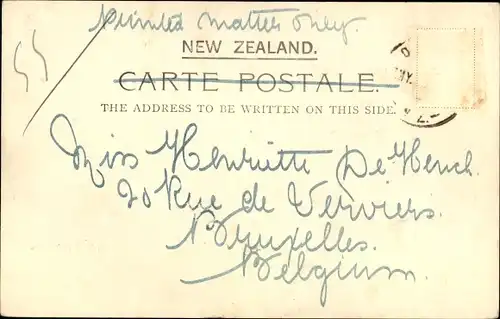 Printed matter only.
55
NEW ZEALAND.
CARTE POSTALE.
THE ADDRESS TO BE WRITTEN ON THIS SIDE.
Miss Henriette De Hench.
20 Rue de Verviers.
Bruxelles.
Belgium.